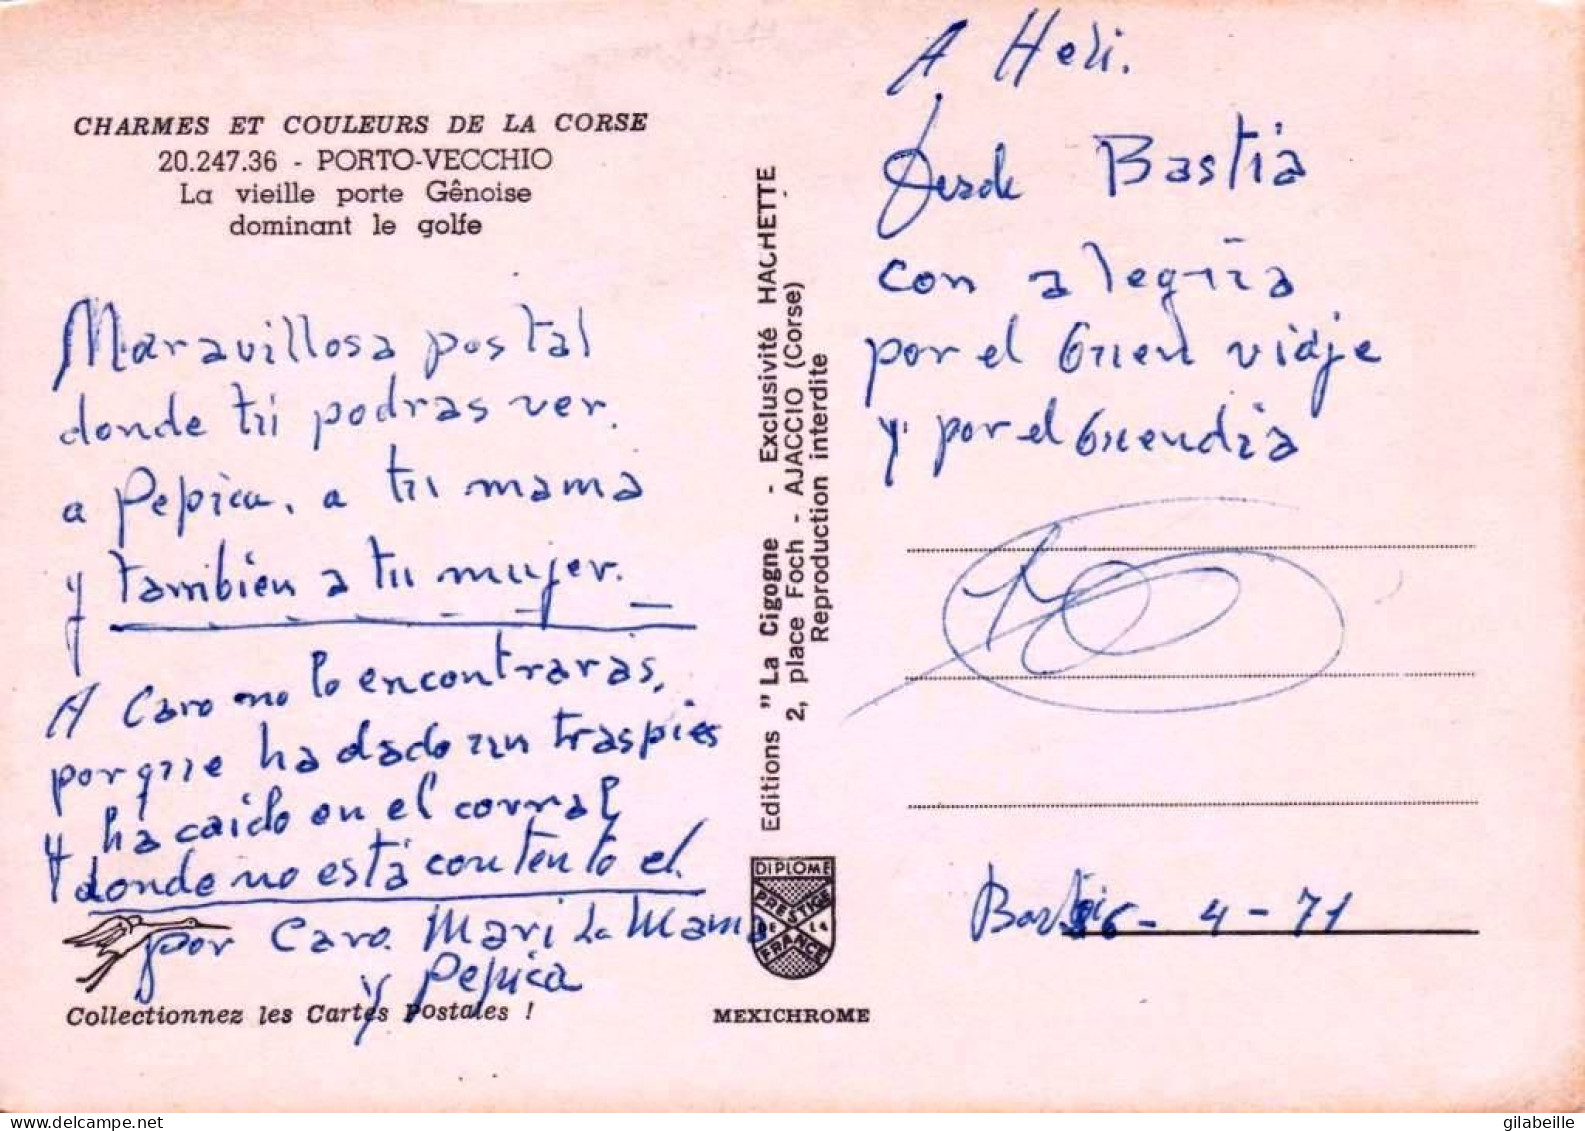 CHARMES ET COULEURS DE LA CORSE
20.247.36 - PORTO-VECCHIO
La vieille porte Gênoise
dominant le golfe
Maravillosa postal
donde tu podras ver.
a Pepica, a tu mamá
y también a tu mujer.
A Caro no lo encontraras,
porque ha dado un traspies
y ha caido en el corral
donde no está contento el.
por Caro. Mari La Mama
y Pepica
Collectionnez les Cartes Postales !
Editions "La Cigogne - Exclusivité HACHETTE
2, place Foch - AJACCIO (Corse)
Reproduction interdite
DIPLOME
PRESTIGE
DE LA
FRANCE
MEXICHROME
A Heli.
Desde Bastia
con alegria
por el buen viaje
y por el buen dia
6 - 4 - 71
gilabeille